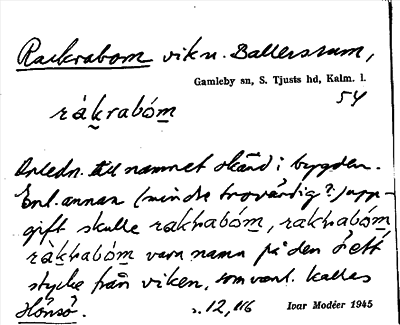 Rackrabom vik n. Ballersrum,
Gamleby sn, S. Tjusts hd, Kalm. l.
54
ràkrabóm
Anledn. till namnet okänd i bygden.
Enl. annan (mindre trovärdig?) upp-
gift skulle rakrabóm, rakrabóm,
ràkrabóm vara namn på den ö ett
stycke från viken, som vanl. kallas
Hönsö.
2.12,116 Ivar Modéer 1945